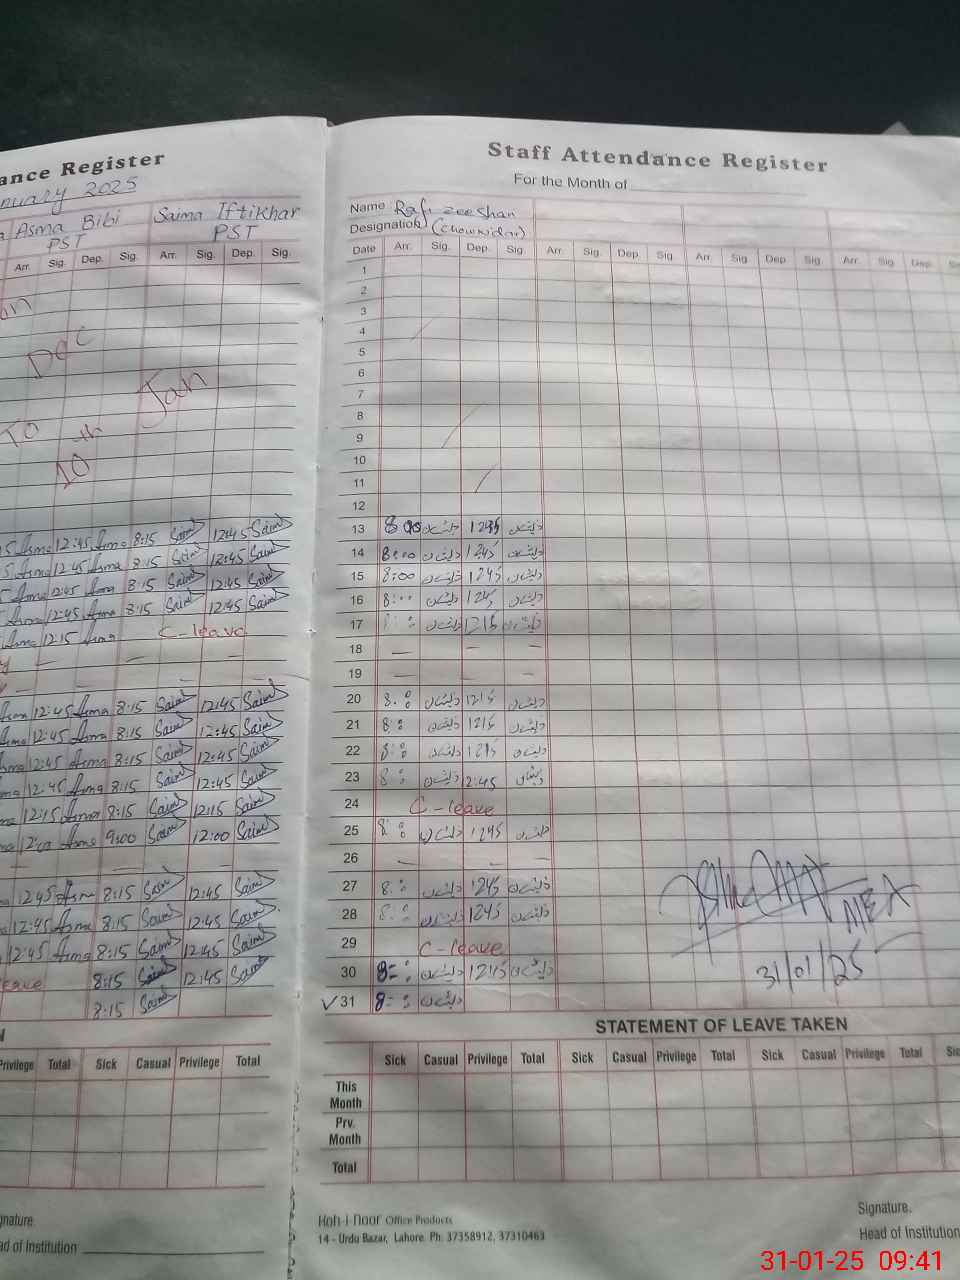 ance Register
nuary 2025
a Asma Bibi Saima Iftikhar
PST PST
Arr. Sig. Dep. Sig. Arr. Sig. Dep. Sig.
Dec
Jan
To
10 th
Asma 12:45 Asma 8:15 Saim 12:45 Saim
Asma 12:45 Asma 8:15 Saim 12:45 Saim
Asma 12:45 Asma 8:15 Saim 12:45 Saim
Asma 12:45 Asma 8:15 Saim 12:45 Saim
Asma 12:15 Asma C-leave
Asma 12:45 Asma 8:15 Saim 12:45 Saim
Asma 12:45 Asma 8:15 Saim 12:45 Saim
Asma 12:45 Asma 8:15 Saim 12:45 Saim
12:45 Asma 8:15 Saim 12:45 Saim
12:15 Asma 8:15 Saim 12:15 Saim
Asma 9:00 Saim 12:00 Saim
12:45 Asma 8:15 Saim 12:45 Saim
12:45 Asma 8:15 Saim 12:45 Saim
12:45 Asma 8:15 Saim 12:45 Saim
eave 8:15 Saim 12:45 Saim
8:15 Saim
Privilege Total Sick Casual Privilege Total
gnature
ad of Institution
Staff Attendance Register
For the Month of
Name Rafi Zeeshan
Designation (Chowkidar)
Date Arr. Sig. Dep. Sig. Arr. Sig. Dep. Sig. Arr. Sig Dep Sig. Arr. Sig Dep. Sig
1
2
3
4
5
6
7
8
9
10
11
12
13 8:00 ذیشان 1245 ذیشان
14 8:00 ذیشان 1245 ذیشان
15 8:00 ذیشان 1245 ذیشان
16 8:00 ذیشان 1245 ذیشان
17 ذیشان 1215 ذیشان
18 — — —
19 — — —
20 8: ذیشان 1215 ذیشان
21 8: ذیشان 1215 ذیشان
22 8: ذیشان 1215 ذیشان
23 8: ذیشان 12:45 ذیشان
24 C-leave
25 8: ذیشان 1245 ذیشان
26 — — —
27 8: ذیشان 1245 ذیشان
28 8: ذیشان 1245 ذیشان
29 C-leave
30 8: ذیشان 1245 ذیشان
✓ 31 8: ذیشان
MEA
31/01/25
STATEMENT OF LEAVE TAKEN
Sick Casual Privilege Total Sick Casual Privilege Total Sick Casual Privilege Total Sic
This Month
Prv. Month
Total
Koh-i-Noor Office Products
14 - Urdu Bazar, Lahore. Ph: 37358912, 37310463
Signature.
Head of Institution
31-01-25 09:41